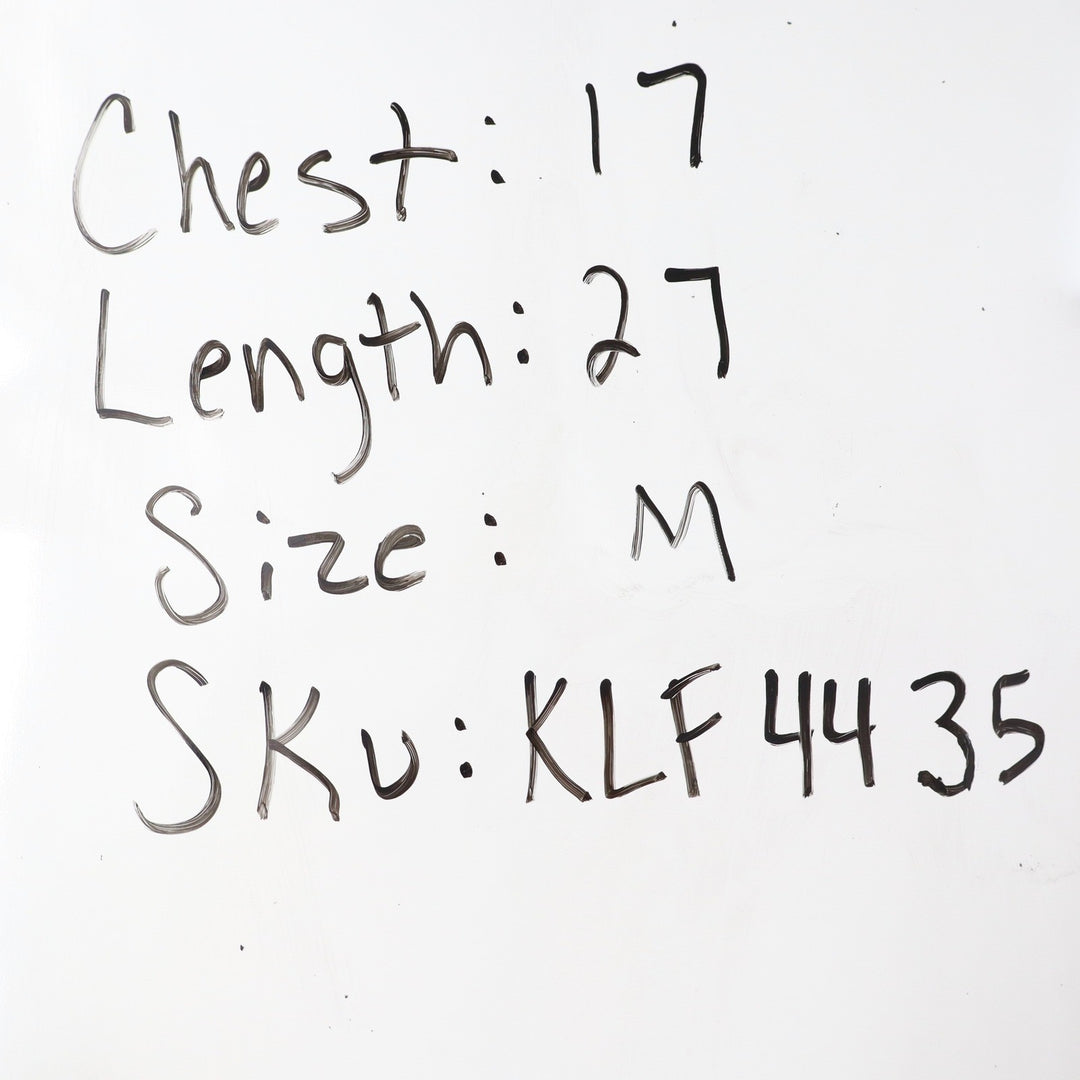 Chest: 17
Length: 27
Size: M
SKU: KLF4435